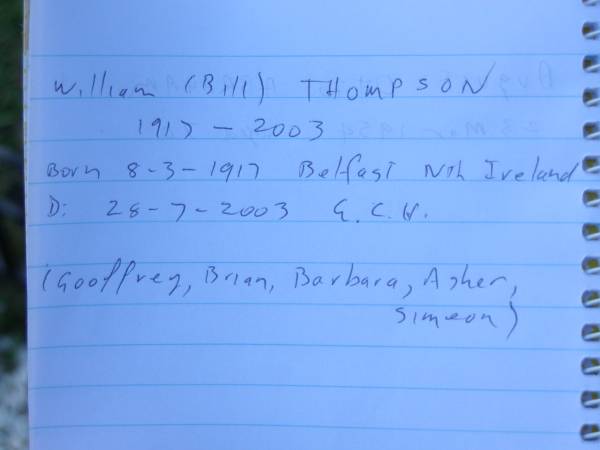 William (Bill) THOMPSON
1917 - 2003
Born 8-3-1917 Belfast Nth Ireland
D: 28-7-2003 G.C.H.
(Gooffrey, Brian, Barbara, Asher,
Simeon)